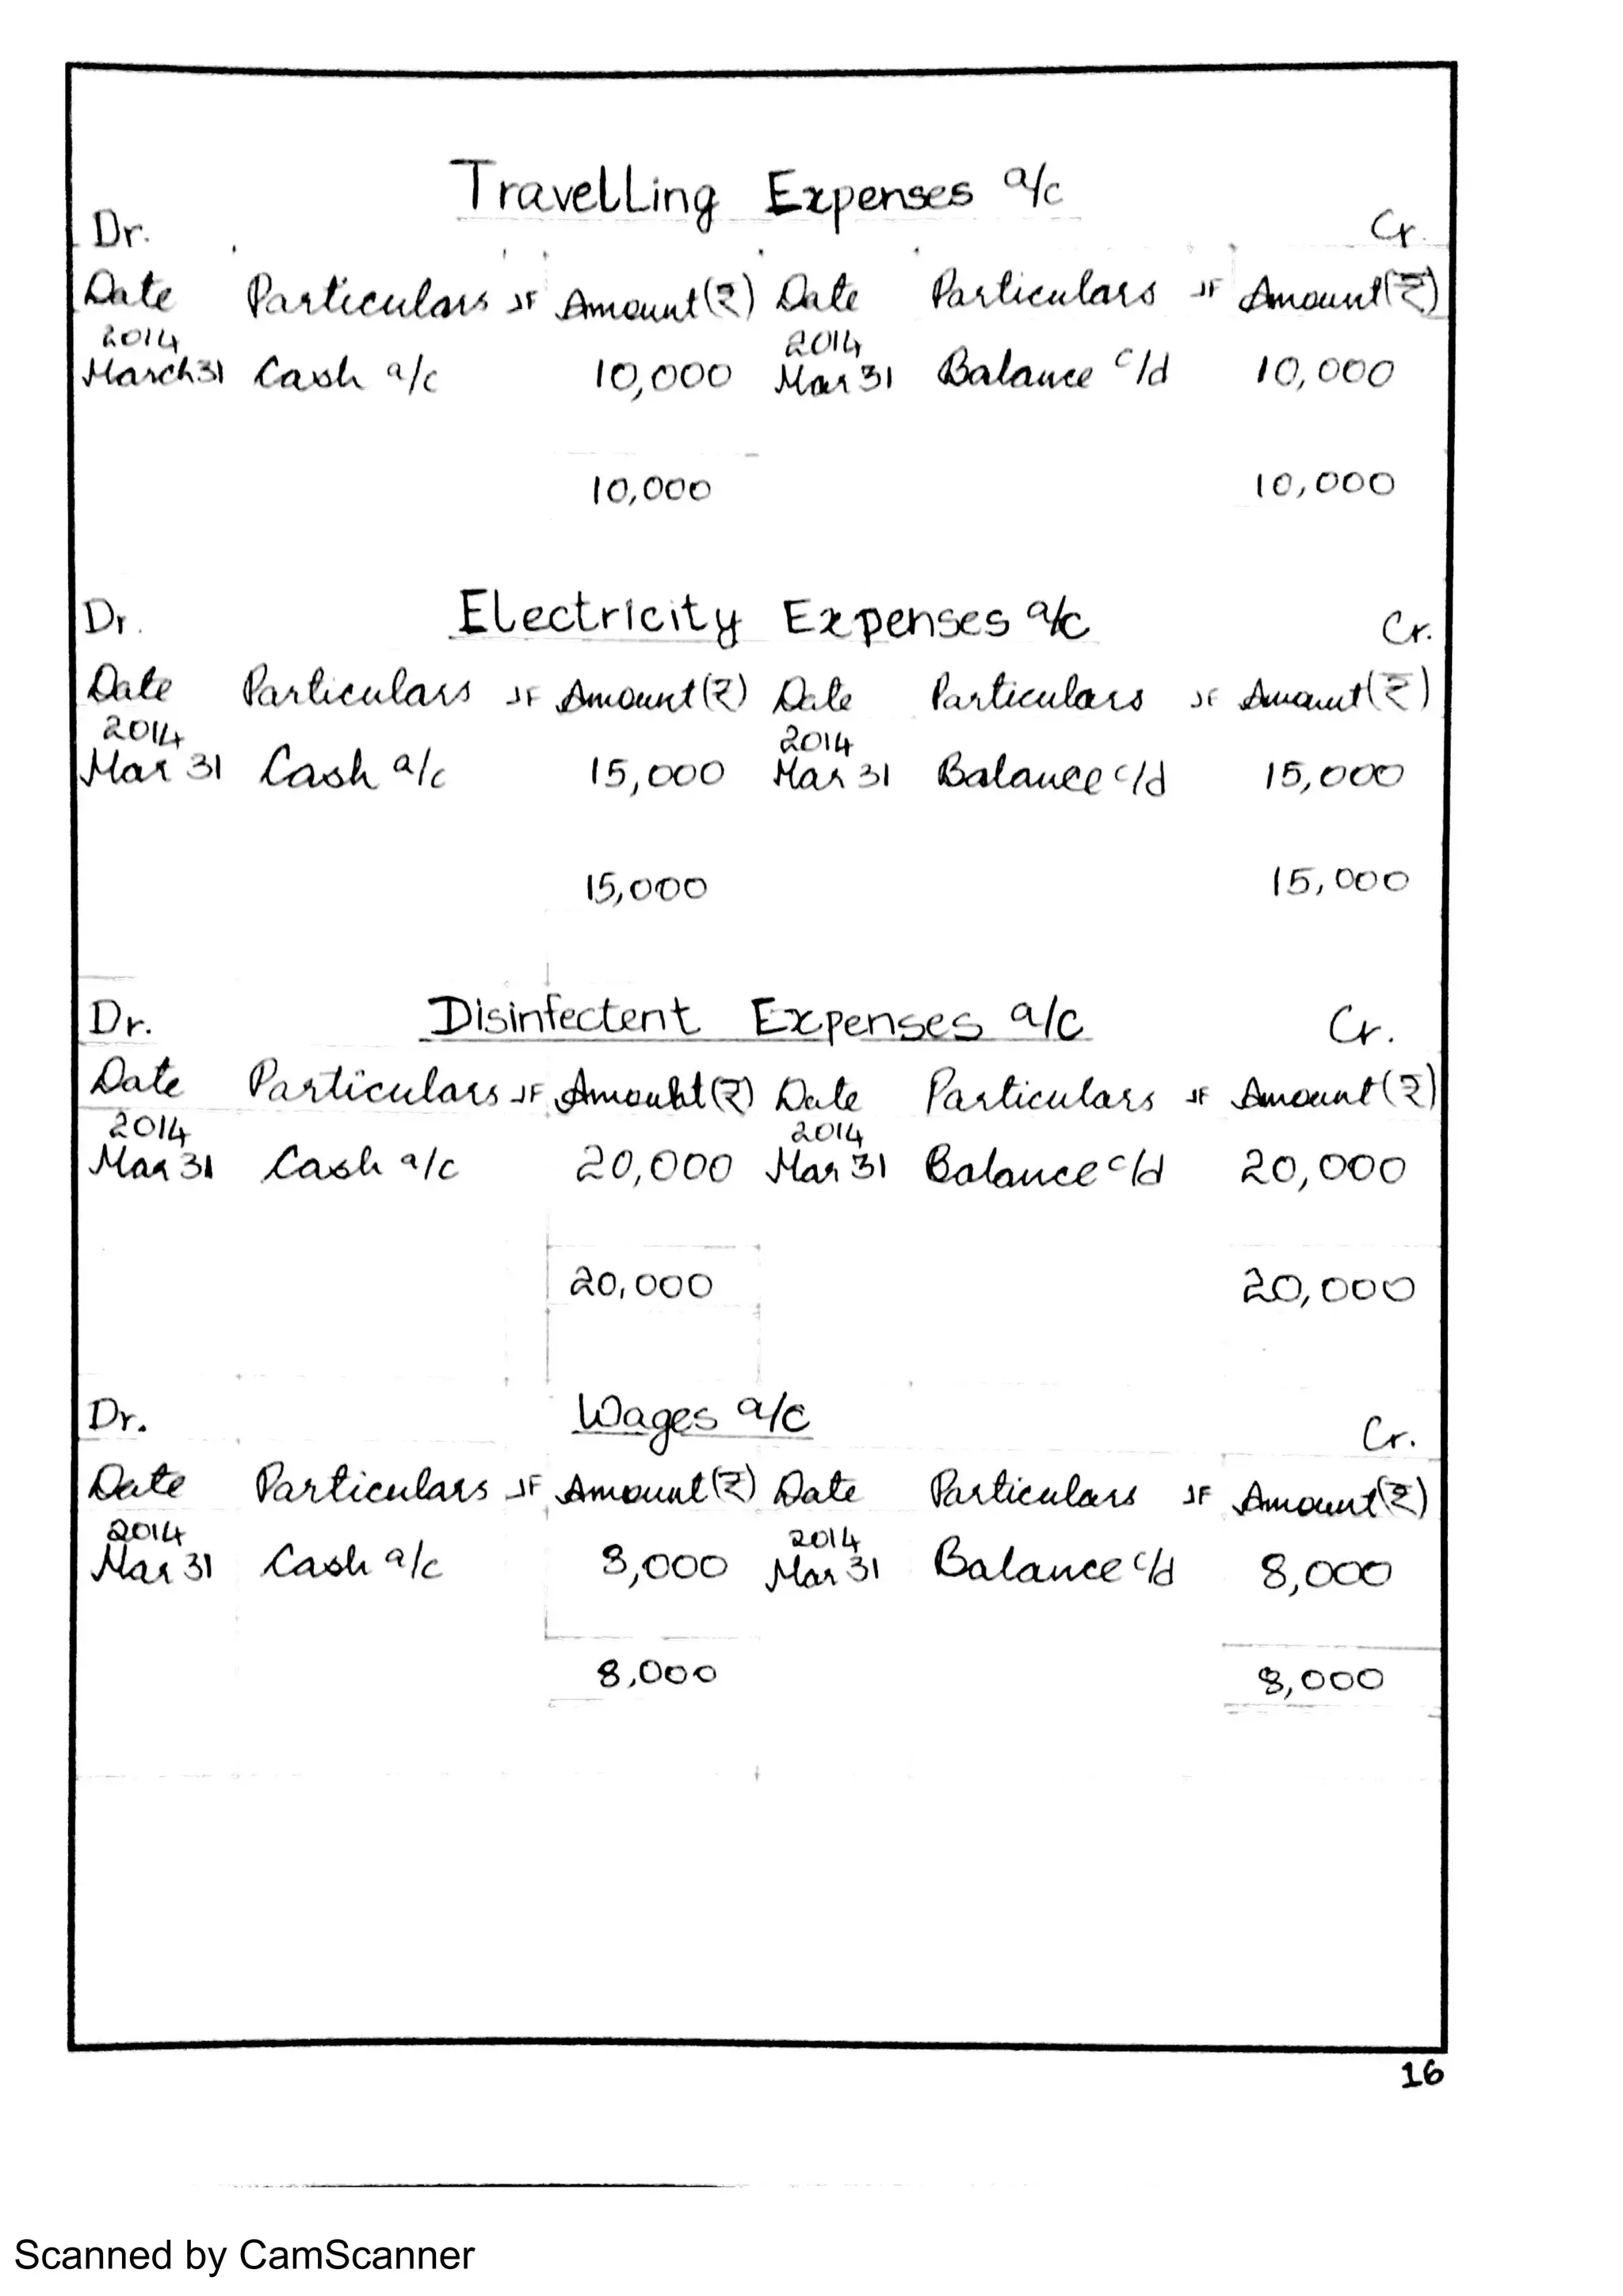 Travelling Expenses a/c
Dr. Cr.
Date Particulars JF Amount(₹) Date Particulars JF Amount(₹)
2014 2014
March31 Cash a/c 10,000 Mar 31 Balance c/d 10,000
10,000 10,000
Dr. Electricity Expenses a/c Cr.
Date Particulars JF Amount(₹) Date Particulars JF Amount(₹)
2014 2014
Mar 31 Cash a/c 15,000 Mar 31 Balance c/d 15,000
15,000 15,000
Dr. Disinfectent Expenses a/c Cr.
Date Particulars JF Amount(₹) Date Particulars JF Amount(₹)
2014 2014
Mar 31 Cash a/c 20,000 Mar 31 Balance c/d 20,000
20,000 20,000
Dr. Wages a/c Cr.
Date Particulars JF Amount(₹) Date Particulars JF Amount(₹)
2014 2014
Mar 31 Cash a/c 8,000 Mar 31 Balance c/d 8,000
8,000 8,000
16
Scanned by CamScanner